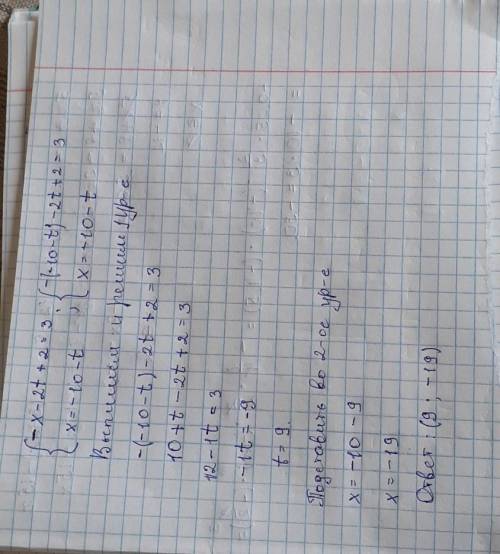 {-x-2t+2=3 ; {-(-10-t)-2t+2=3
{x=-10-t ; {x=-10-t
Выпишем и решим 1 ур-е
-(-10-t)-2t+2=3
10+t-2t+2=3
12-1t=3
-1t=-9
t=9.
Подставить во 2-ое ур-е
x=-10-9
x=-19
Ответ: (9; -19)